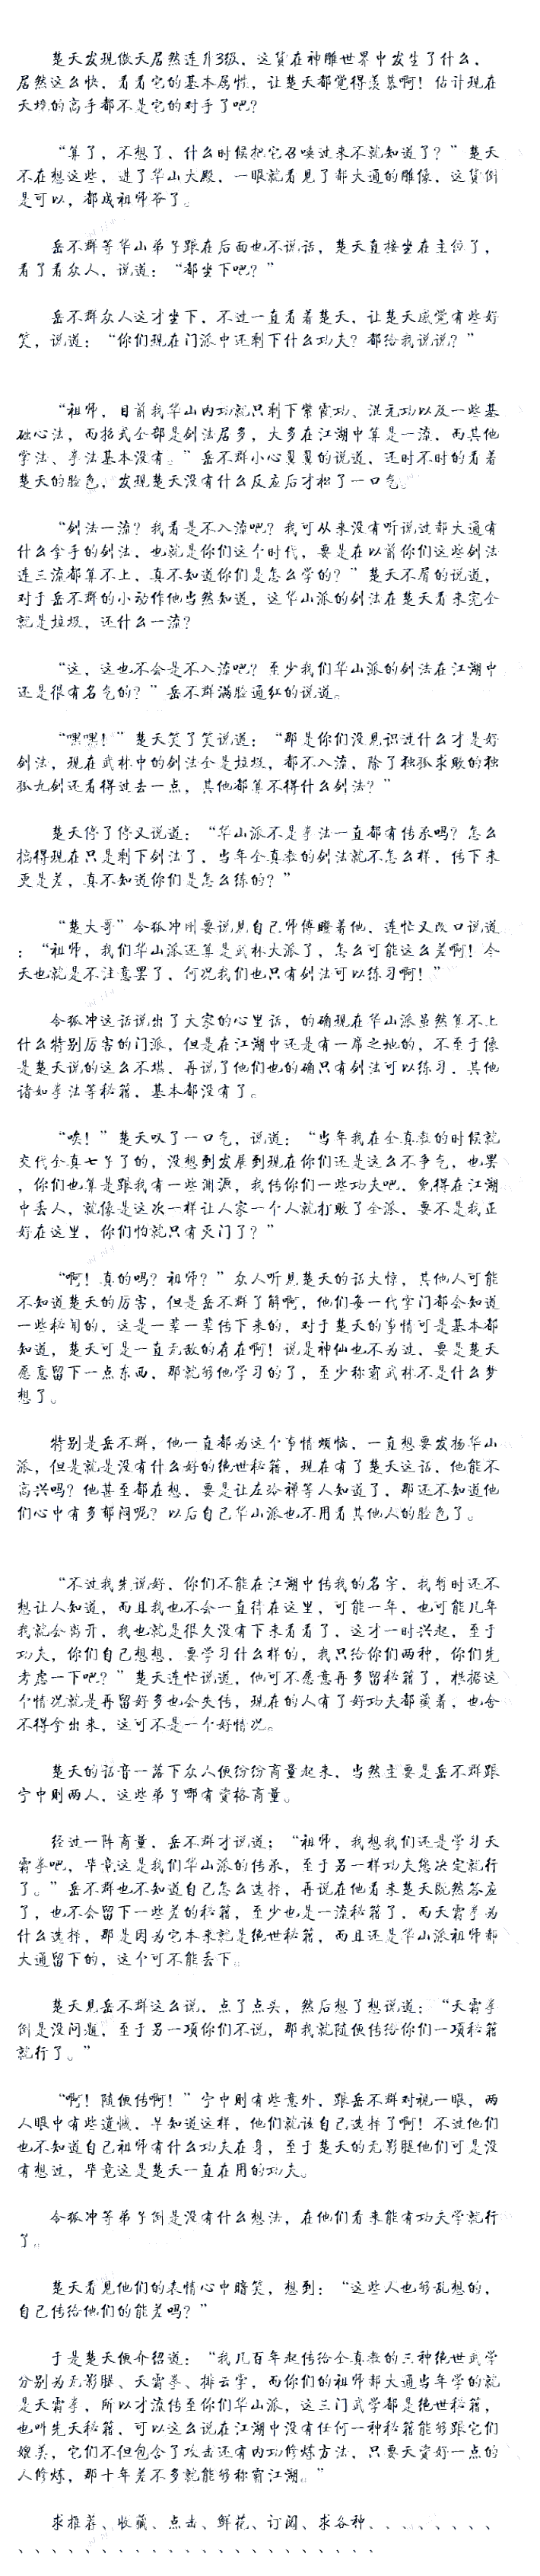 楚天发现傲天居然连升3级，这货在神雕世界中发生了什么，
居然这么快，看看它的基本属性，让楚天都觉得羡慕啊！估计现在
天境的高手都不是它的对手了吧？
“算了，不想了，什么时候把它召唤过来不就知道了？”楚天
不在想这些，进了华山大殿，一眼就看见了郝大通的雕像，这货倒
是可以，都成祖师爷了。
岳不群等华山弟子跟在后面也不说话，楚天直接坐在主位了，
看了看众人，说道：“都坐下吧？”
岳不群众人这才坐下，不过一直看着楚天，让楚天感觉有些好
笑，说道：“你们现在门派中还剩下什么功夫？都给我说说？”
“祖师，目前我华山内功就只剩下紫霞功、混元功以及一些基
础心法，而招式全部是剑法居多，大多在江湖中算是一流，而其他
掌法、拳法基本没有。”岳不群小心翼翼的说道，还时不时的看着
楚天的脸色，发现楚天没有什么反应后才松了一口气。
“剑法一流？我看是不入流吧？我可从来没有听说过郝大通有
什么拿手的剑法，也就是你们这个时代，要是在以前你们这些剑法
连三流都算不上，真不知道你们是怎么学的？”楚天不屑的说道，
对于岳不群的小动作他当然知道，这华山派的剑法在楚天看来完全
就是垃圾，还什么一流？
“这，这也不会是不入流吧？至少我们华山派的剑法在江湖中
还是很有名气的？”岳不群满脸通红的说道。
“嘿嘿！”楚天笑了笑说道：“那是你们没见识过什么才是好
剑法，现在武林中的剑法全是垃圾，都不入流，除了独孤求败的独
孤九剑还看得过去一点，其他都算不得什么剑法？”
楚天停了停又说道：“华山派不是拳法一直都有传承吗？怎么
搞得现在只是剩下剑法了，当年全真教的剑法就不怎么样，传下来
更是差，真不知道你们是怎么练的？”
“楚大哥”令狐冲刚要说见自己师傅瞪着他，连忙又改口说道
：“祖师，我们华山派还算是武林大派了，怎么可能这么差啊！今
天也就是不注意罢了，何况我们也只有剑法可以练习啊！”
令狐冲这话说出了大家的心里话，的确现在华山派虽然算不上
什么特别厉害的门派，但是在江湖中还是有一席之地的，不至于像
是楚天说的这么不堪，再说了他们也的确只有剑法可以练习，其他
诸如拳法等秘籍，基本都没有了。
“唉！”楚天叹了一口气，说道：“当年我在全真教的时候就
交代全真七子了的，没想到发展到现在你们还是这么不争气，也罢
，你们也算是跟我有一些渊源，我传你们一些功夫吧，免得在江湖
中丢人，就像是这次一样让人家一个人就打败了全派，要不是我正
好在这里，你们怕就只有灭门了？”
“啊！真的吗？祖师？”众人听见楚天的话大惊，其他人可能
不知道楚天的厉害，但是岳不群了解啊，他们每一代掌门都会知道
一些秘闻的，这是一辈一辈传下来的，对于楚天的事情可是基本都
知道，楚天可是一直无敌的存在啊！说是神仙也不为过，要是楚天
愿意留下一点东西，那就够他学习的了，至少称霸武林不是什么梦
想了。
特别是岳不群，他一直都为这个事情烦恼，一直想要发扬华山
派，但是就是没有什么好的绝世秘籍，现在有了楚天这话，他能不
高兴吗？他甚至都在想，要是让左冷禅等人知道了，那还不知道他
们心中有多郁闷呢？以后自己华山派也不用看其他人的脸色了。
“不过我先说好，你们不能在江湖中传我的名字，我暂时还不
想让人知道，而且我也不会一直待在这里，可能一年，也可能几年
我就会离开，我也就是很久没有下来看看了，这才一时兴起，至于
功夫，你们自己想想，要学习什么样的，我只给你们两种，你们先
考虑一下吧？”楚天连忙说道，他可不愿意再多留秘籍了，根据这
个情况就是再留好多也会失传，现在的人有了好功夫都藏着，也舍
不得拿出来，这可不是一个好情况。
楚天的话音一落下众人便纷纷商量起来，当然主要是岳不群跟
宁中则两人，这些弟子哪有资格商量。
经过一阵商量，岳不群才说道：“祖师，我想我们还是学习天
霜拳吧，毕竟这是我们华山派的传承，至于另一样功夫您决定就行
了。”岳不群也不知道自己怎么选择，再说在他看来楚天既然答应
了，也不会留下一些差的秘籍，至少也是一流秘籍了，而天霜拳为
什么选择，那是因为它本来就是绝世秘籍，而且还是华山派祖师郝
大通留下的，这个可不能丢下。
楚天见岳不群这么说，点了点头，然后想了想说道：“天霜拳
倒是没问题，至于另一项你们不说，那我就随便传给你们一项秘籍
就行了。”
“啊！随便传啊！”宁中则有些意外，跟岳不群对视一眼，两
人眼中有些遗憾，早知道这样，他们就该自己选择了啊！不过他们
也不知道自己祖师有什么功夫在身，至于楚天的无影腿他们可是没
有想过，毕竟这是楚天一直在用的功夫。
令狐冲等弟子倒是没有什么想法，在他们看来能有功夫学就行
了。
楚天看见他们的表情心中暗笑，想到：“这些人也够乱想的，
自己传给他们的能差吗？”
于是楚天便介绍道：“我几百年起传给全真教的三种绝世武学
分别为无影腿、天霜拳、排云掌，而你们的祖师郝大通当年学的就
是天霜拳，所以才流传至你们华山派，这三门武学都是绝世秘籍，
也叫先天秘籍，可以这么说在江湖中没有任何一种秘籍能够跟它们
媲美，它们不但包含了攻击还有内功修炼方法，只要天资好一点的
人修炼，那十年差不多就能够称霸江湖。”
求推荐、收藏、点击、鲜花、订阅、求各种、、、、、、、、
、、、、、、、、、、、、、、、、、、、、、、